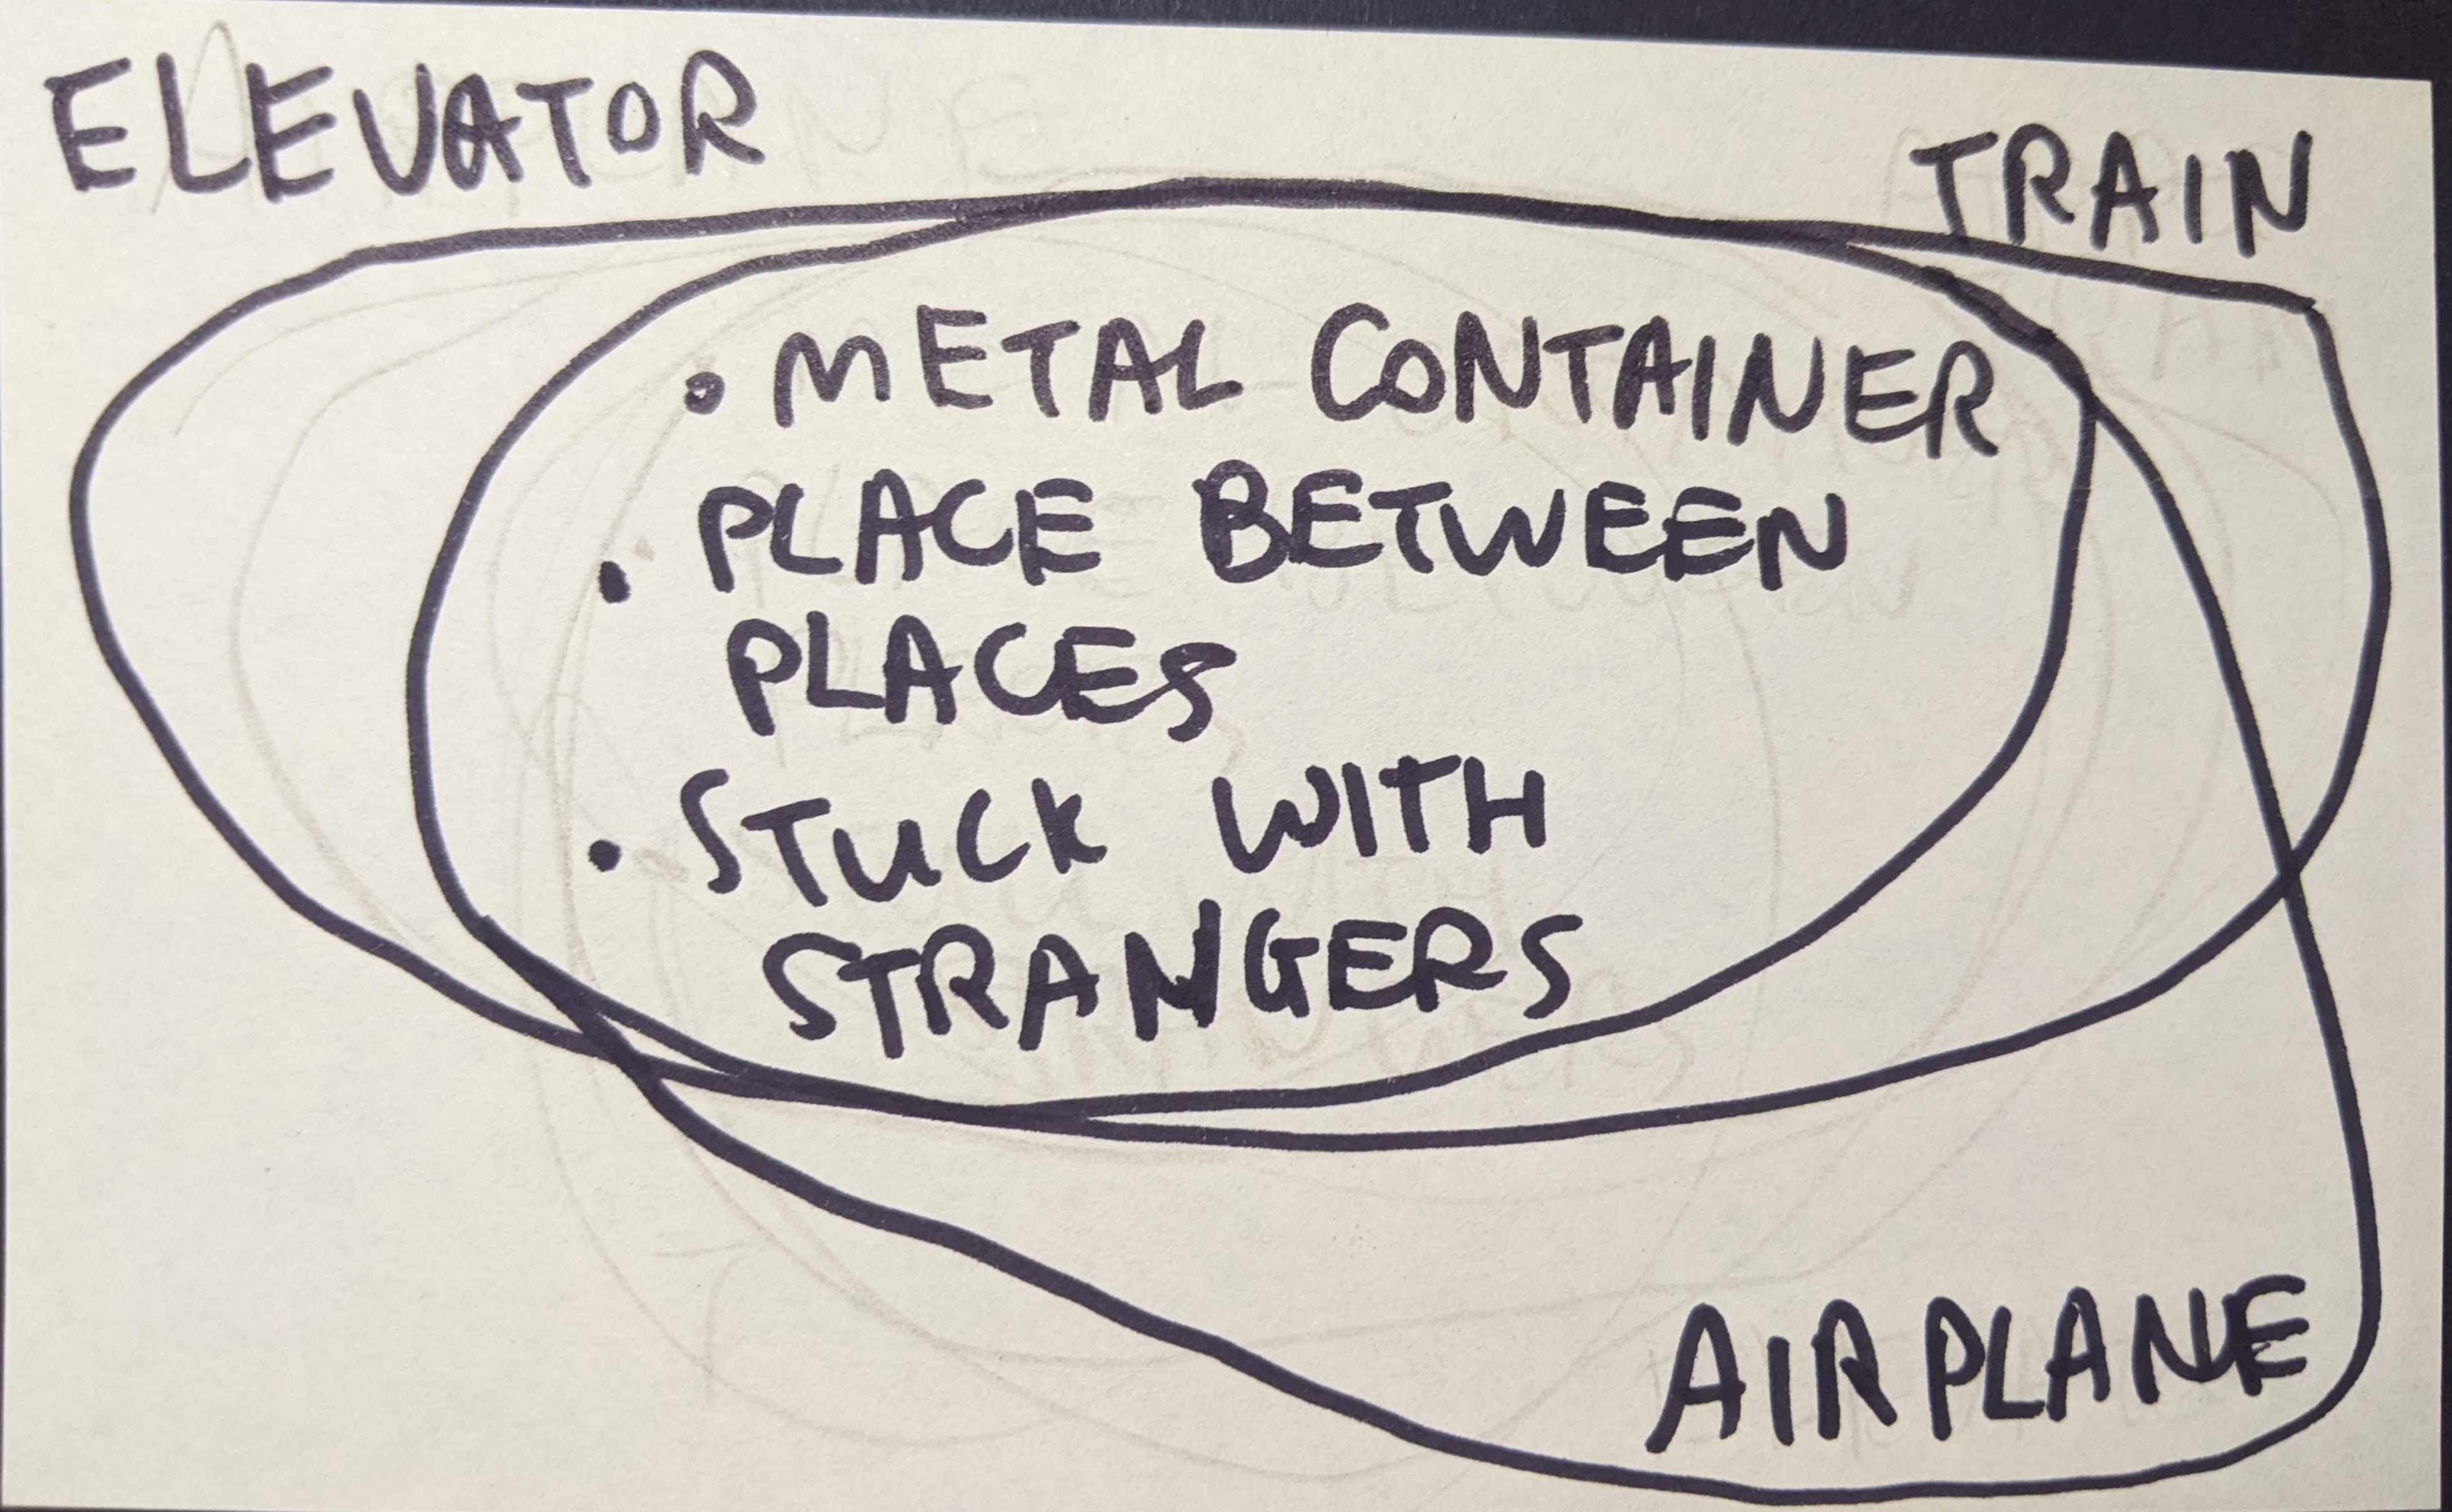 ELEVATOR
TRAIN
• METAL CONTAINER
• PLACE BETWEEN
PLACES
• STUCK WITH
STRANGERS
AIRPLANE